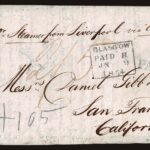 Steamer from Liverpool via
GLASGOW
PAID
JA
1854
Messrs Daniel Gibb
San Fran
Californ